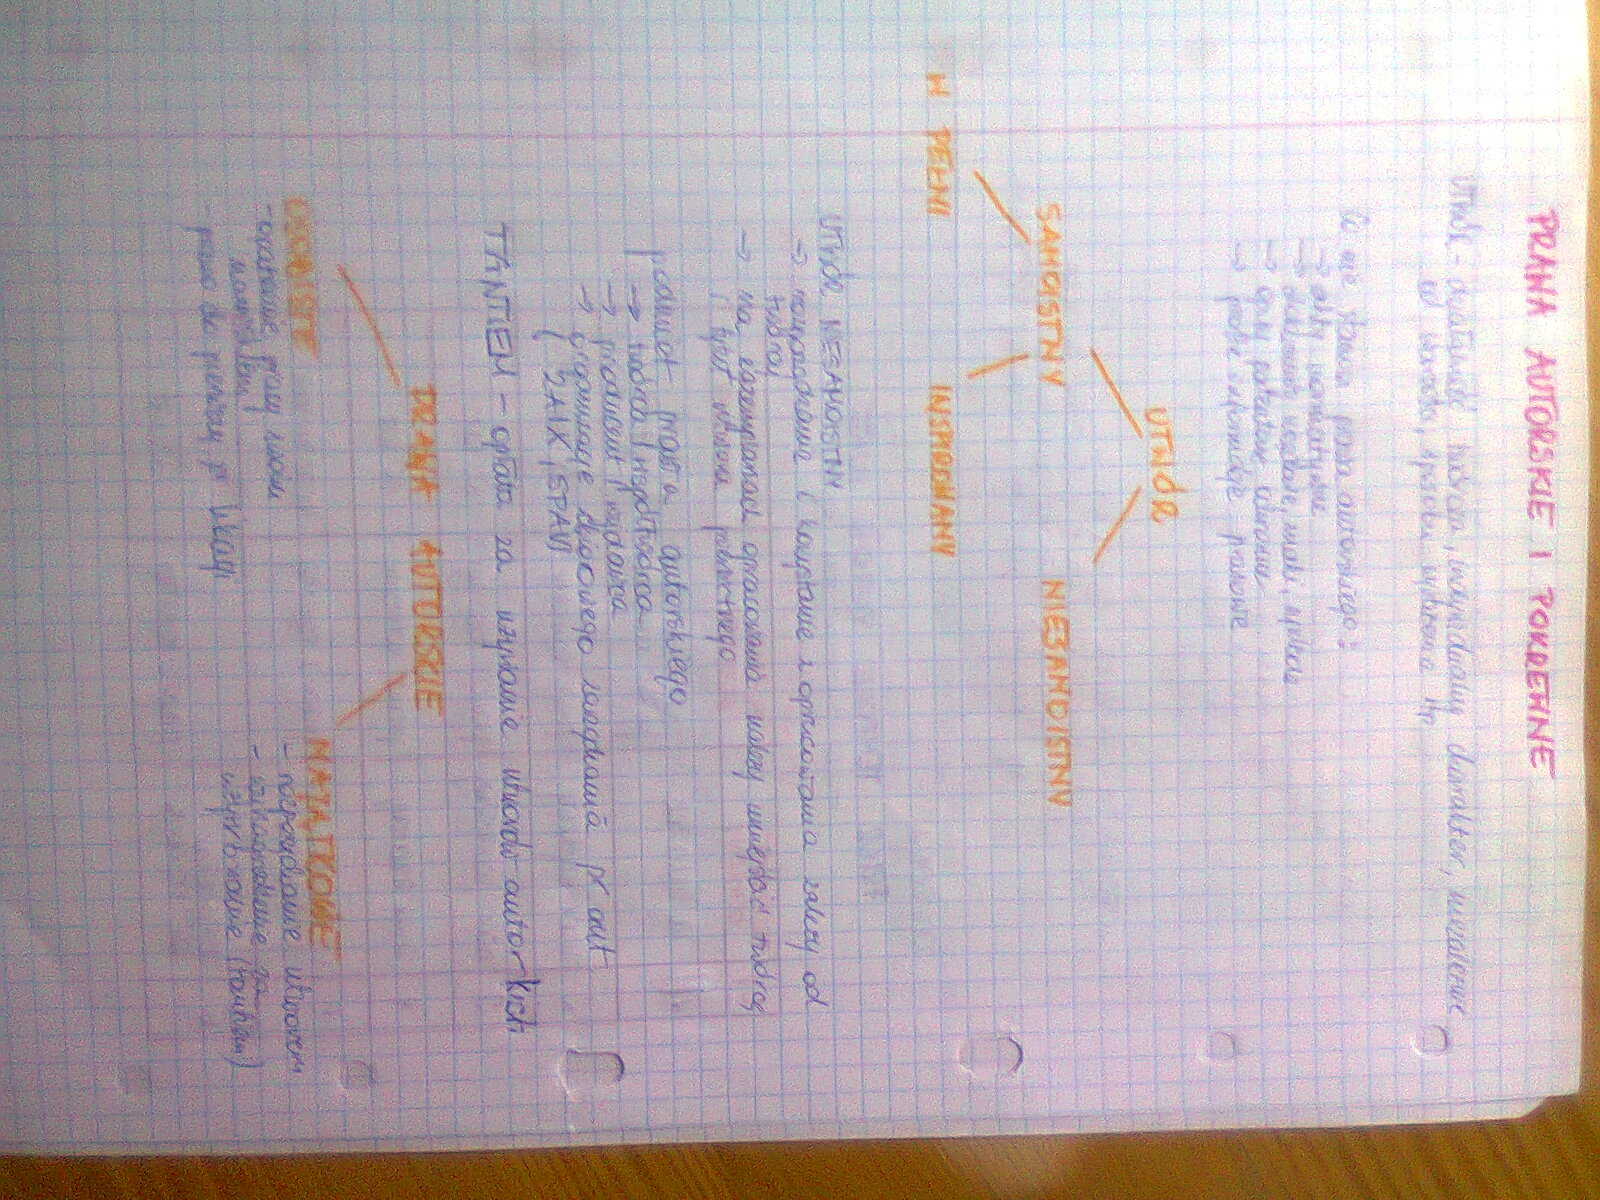 PRAWA AUTORSKIE I POKREWNE
Utwór - działalność twórcza, indywidualny charakter, niezależnie
od wartości, sposobu wyrażenia itp
Co nie stanowi prawa autorskiego?
→ akty normatywne
→ dokumenty urzędowe, znaki, symbole
→ opisy patentowe, ochronne
→ proste informacje prasowe
UTWÓR
SAMOISTNY NIESAMOISTNY
W PEŁNI INSPIROWANY
Utwór NIESAMOISTNY
→ rozporządzanie i korzystanie z opracowania zależy od
twórcy
→ na egzemplarzach opracowania należy umieścić twórcę
i tytuł utworu pierwotnego
podmiot prawa autorskiego
→ twórca / współtwórca
→ producent / wydawca
→ organizacje zbiorowego zarządzania pr aut
(ZAIX, SPAV)
TANTIEM - opłata za używanie utworów autorskich
PRAWA AUTORSKIE
OSOBISTE
- oznaczenie pracy swoim
nazwiskiem
- prawo do
MAJĄTKOWE
- rozporządzanie utworem
- wynagrodzenie za
użytkowanie (tantiem)